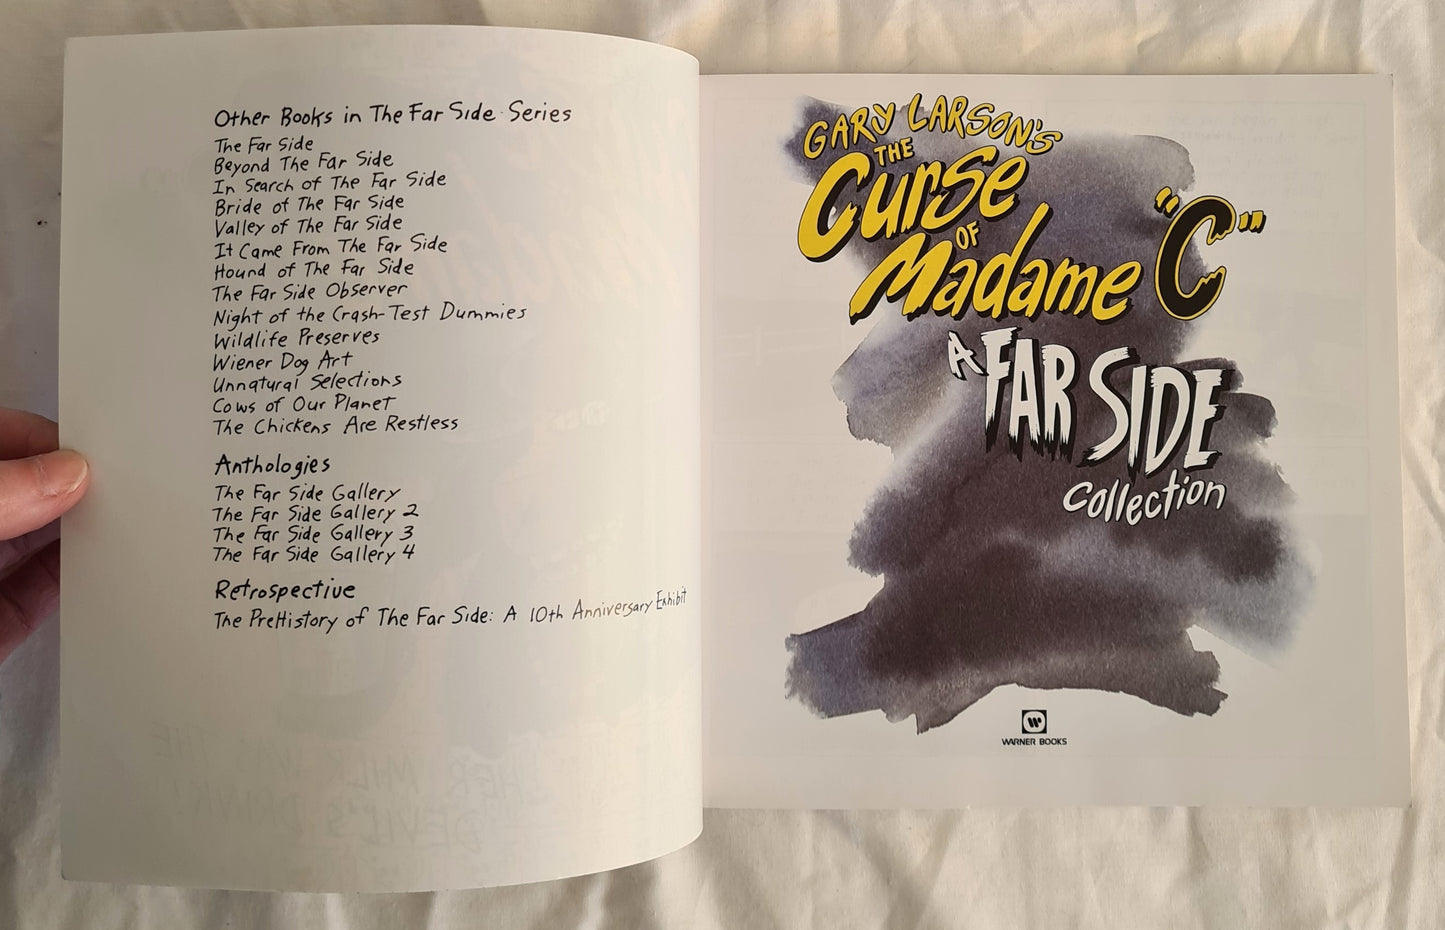 Other Books in The Far Side Series
The Far Side
Beyond The Far Side
In Search of The Far Side
Bride of The Far Side
Valley of The Far Side
It Came From The Far Side
Hound of The Far Side
The Far Side Observer
Night of the Crash-Test Dummies
Wildlife Preserves
Wiener Dog Art
Unnatural Selections
Cows of Our Planet
The Chickens Are Restless
Anthologies
The Far Side Gallery
The Far Side Gallery 2
The Far Side Gallery 3
The Far Side Gallery 4
Retrospective
The PreHistory of The Far Side: A 10th Anniversary Exhibit
GARY LARSON'S
THE
Curse
OF
Madame "C"
A FAR SIDE
Collection
W
WARNER BOOKS